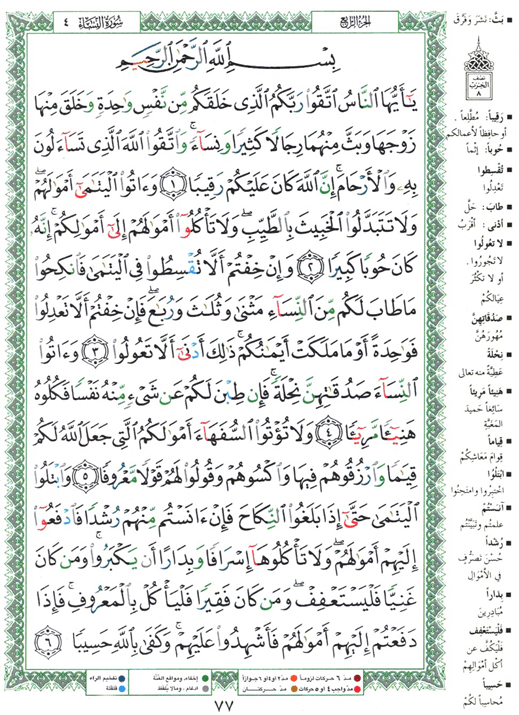 سُورَةُ النِّسَاءِ ٤
الجزء الرابع
بِسْمِ اللَّهِ الرَّحْمَٰنِ الرَّحِيمِ
يَٰٓأَيُّهَا النَّاسُ اتَّقُوا۟ رَبَّكُمُ الَّذِى خَلَقَكُم مِّن نَّفْسٍ وَٰحِدَةٍ وَخَلَقَ مِنْهَا
زَوْجَهَا وَبَثَّ مِنْهُمَا رِجَالًا كَثِيرًا وَنِسَآءً ۚ وَاتَّقُوا۟ اللَّهَ الَّذِى تَسَآءَلُونَ
بِهِۦ وَالْأَرْحَامَ ۚ إِنَّ اللَّهَ كَانَ عَلَيْكُمْ رَقِيبًا ١ وَءَاتُوا۟ الْيَتَٰمَىٰٓ أَمْوَٰلَهُمْ ۖ
وَلَا تَتَبَدَّلُوا۟ الْخَبِيثَ بِالطَّيِّبِ ۖ وَلَا تَأْكُلُوٓا۟ أَمْوَٰلَهُمْ إِلَىٰٓ أَمْوَٰلِكُمْ ۚ إِنَّهُۥ
كَانَ حُوبًا كَبِيرًا ٢ وَإِنْ خِفْتُمْ أَلَّا تُقْسِطُوا۟ فِى الْيَتَٰمَىٰ فَانكِحُوا۟
مَا طَابَ لَكُم مِّنَ النِّسَآءِ مَثْنَىٰ وَثُلَٰثَ وَرُبَٰعَ ۖ فَإِنْ خِفْتُمْ أَلَّا تَعْدِلُوا۟
فَوَٰحِدَةً أَوْ مَا مَلَكَتْ أَيْمَٰنُكُمْ ۚ ذَٰلِكَ أَدْنَىٰٓ أَلَّا تَعُولُوا۟ ٣ وَءَاتُوا۟
النِّسَآءَ صَدُقَٰتِهِنَّ نِحْلَةً ۚ فَإِن طِبْنَ لَكُمْ عَن شَىْءٍ مِّنْهُ نَفْسًا فَكُلُوهُ
هَنِيٓـًٔا مَّرِيٓـًٔا ٤ وَلَا تُؤْتُوا۟ السُّفَهَآءَ أَمْوَٰلَكُمُ الَّتِى جَعَلَ اللَّهُ لَكُمْ
قِيَٰمًا وَارْزُقُوهُمْ فِيهَا وَاكْسُوهُمْ وَقُولُوا۟ لَهُمْ قَوْلًا مَّعْرُوفًا ٥ وَابْتَلُوا۟
الْيَتَٰمَىٰ حَتَّىٰٓ إِذَا بَلَغُوا۟ النِّكَاحَ فَإِنْ ءَانَسْتُم مِّنْهُمْ رُشْدًا فَادْفَعُوٓا۟
إِلَيْهِمْ أَمْوَٰلَهُمْ ۖ وَلَا تَأْكُلُوهَآ إِسْرَافًا وَبِدَارًا أَن يَكْبَرُوا۟ ۚ وَمَن كَانَ
غَنِيًّا فَلْيَسْتَعْفِفْ ۖ وَمَن كَانَ فَقِيرًا فَلْيَأْكُلْ بِالْمَعْرُوفِ ۚ فَإِذَا
دَفَعْتُمْ إِلَيْهِمْ أَمْوَٰلَهُمْ فَأَشْهِدُوا۟ عَلَيْهِمْ ۚ وَكَفَىٰ بِاللَّهِ حَسِيبًا ٦
بَثَّ: نَشَرَ وَفَرَّقَ
نصف
الحزب
٨
رَقِيبًا: مُطَّلِعاً.
أو حافِظاً لأعمالكم
حُوبًا: إثْماً
تُقْسِطُوا
تَعْدِلُوا
طَابَ: حَلَّ
أدنى: أقْرَبُ
لا تعولوا
لا تَجُورُوا.
أو لا تَكْثُرُ
عِيالُكُمْ
صَدُقَاتِهِنَّ
مُهُورَهُنَّ
نِحْلَةً
عَطِيَّةً منه تعالى
هَنِيئاً مَرِيئاً
سائِغاً حَمِيدَ
المَغَبَّةِ
قِيَاماً
قِوامَ مَعَاشِكُمْ
ابْتَلُوا
اختبروا وامتحنوا
آنَسْتُمْ
علمتُم وتَبَيَّنْتُم
رُشْداً
حُسْنَ تَصَرُّفٍ
في الأمْوالِ
بِدَاراً
مُبادِرِينَ
فَلْيَسْتَعْفِفْ
فَلْيَكُفَّ عن
أكْلِ أموالِهِمْ
حَسِيباً
مُحَاسِباً لكُمْ
مدّ ٦ حركات لزوماً مدّ ٢ أو ٤ أو ٦ جوازاً إخفاء ومواقع الغُنَّة تفخيم الراء
مدّ واجب ٤ أو ٥ حركات مدّ حركتان إدغام، وما لا يُلفظ قلقلة
٧٧